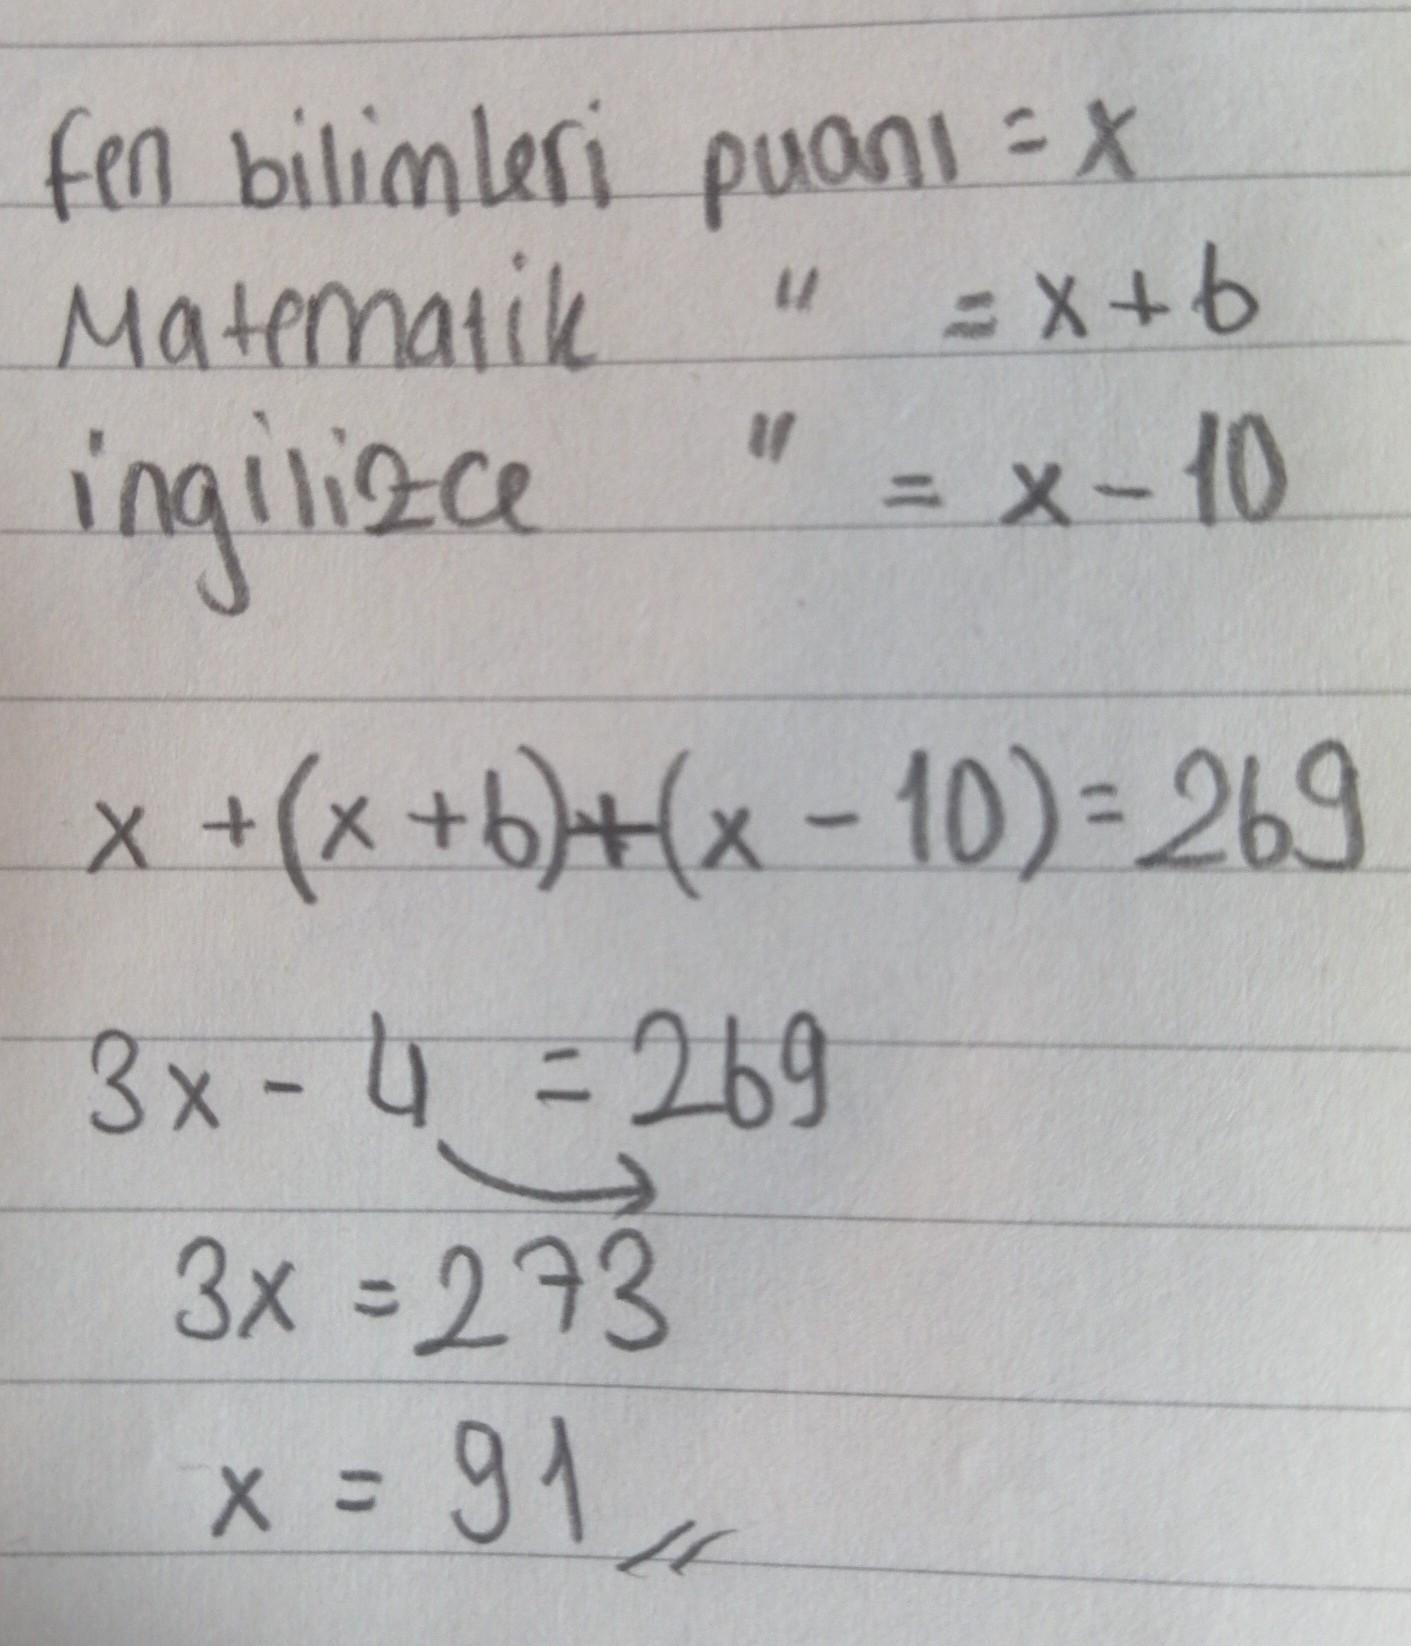 fen bilimleri puanı = x
Matematik " = x + 6
ingilizce " = x - 10
x + (x + 6) + (x - 10) = 269
3x - 4 = 269
3x = 273
x = 91 //